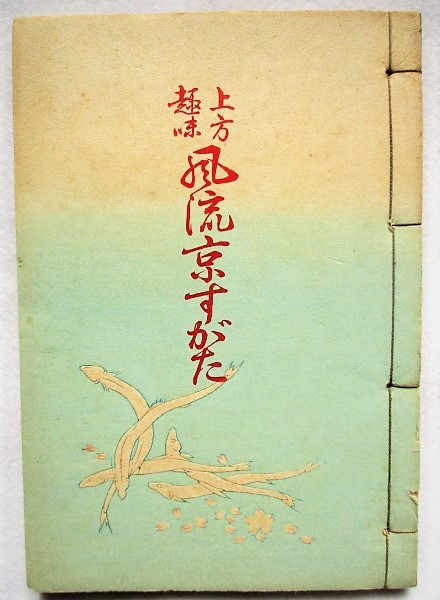 上方
趣味
風流京すがた